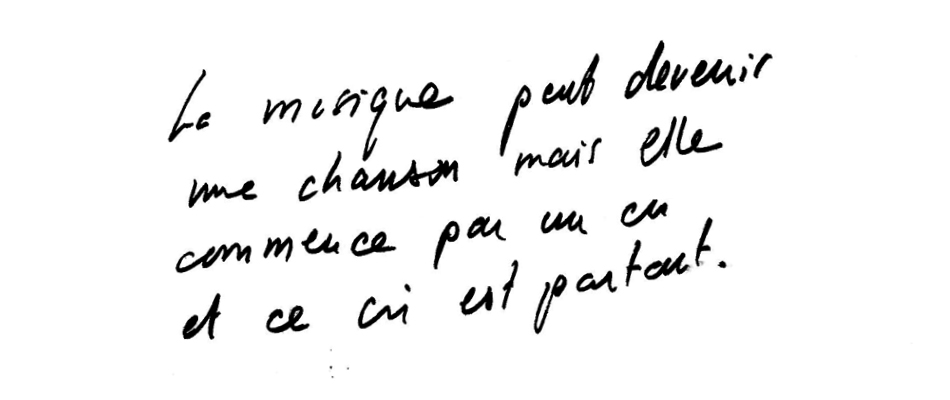 La musique peut devenir
une chanson mais elle
commence par un cri
et ce cri est partout.